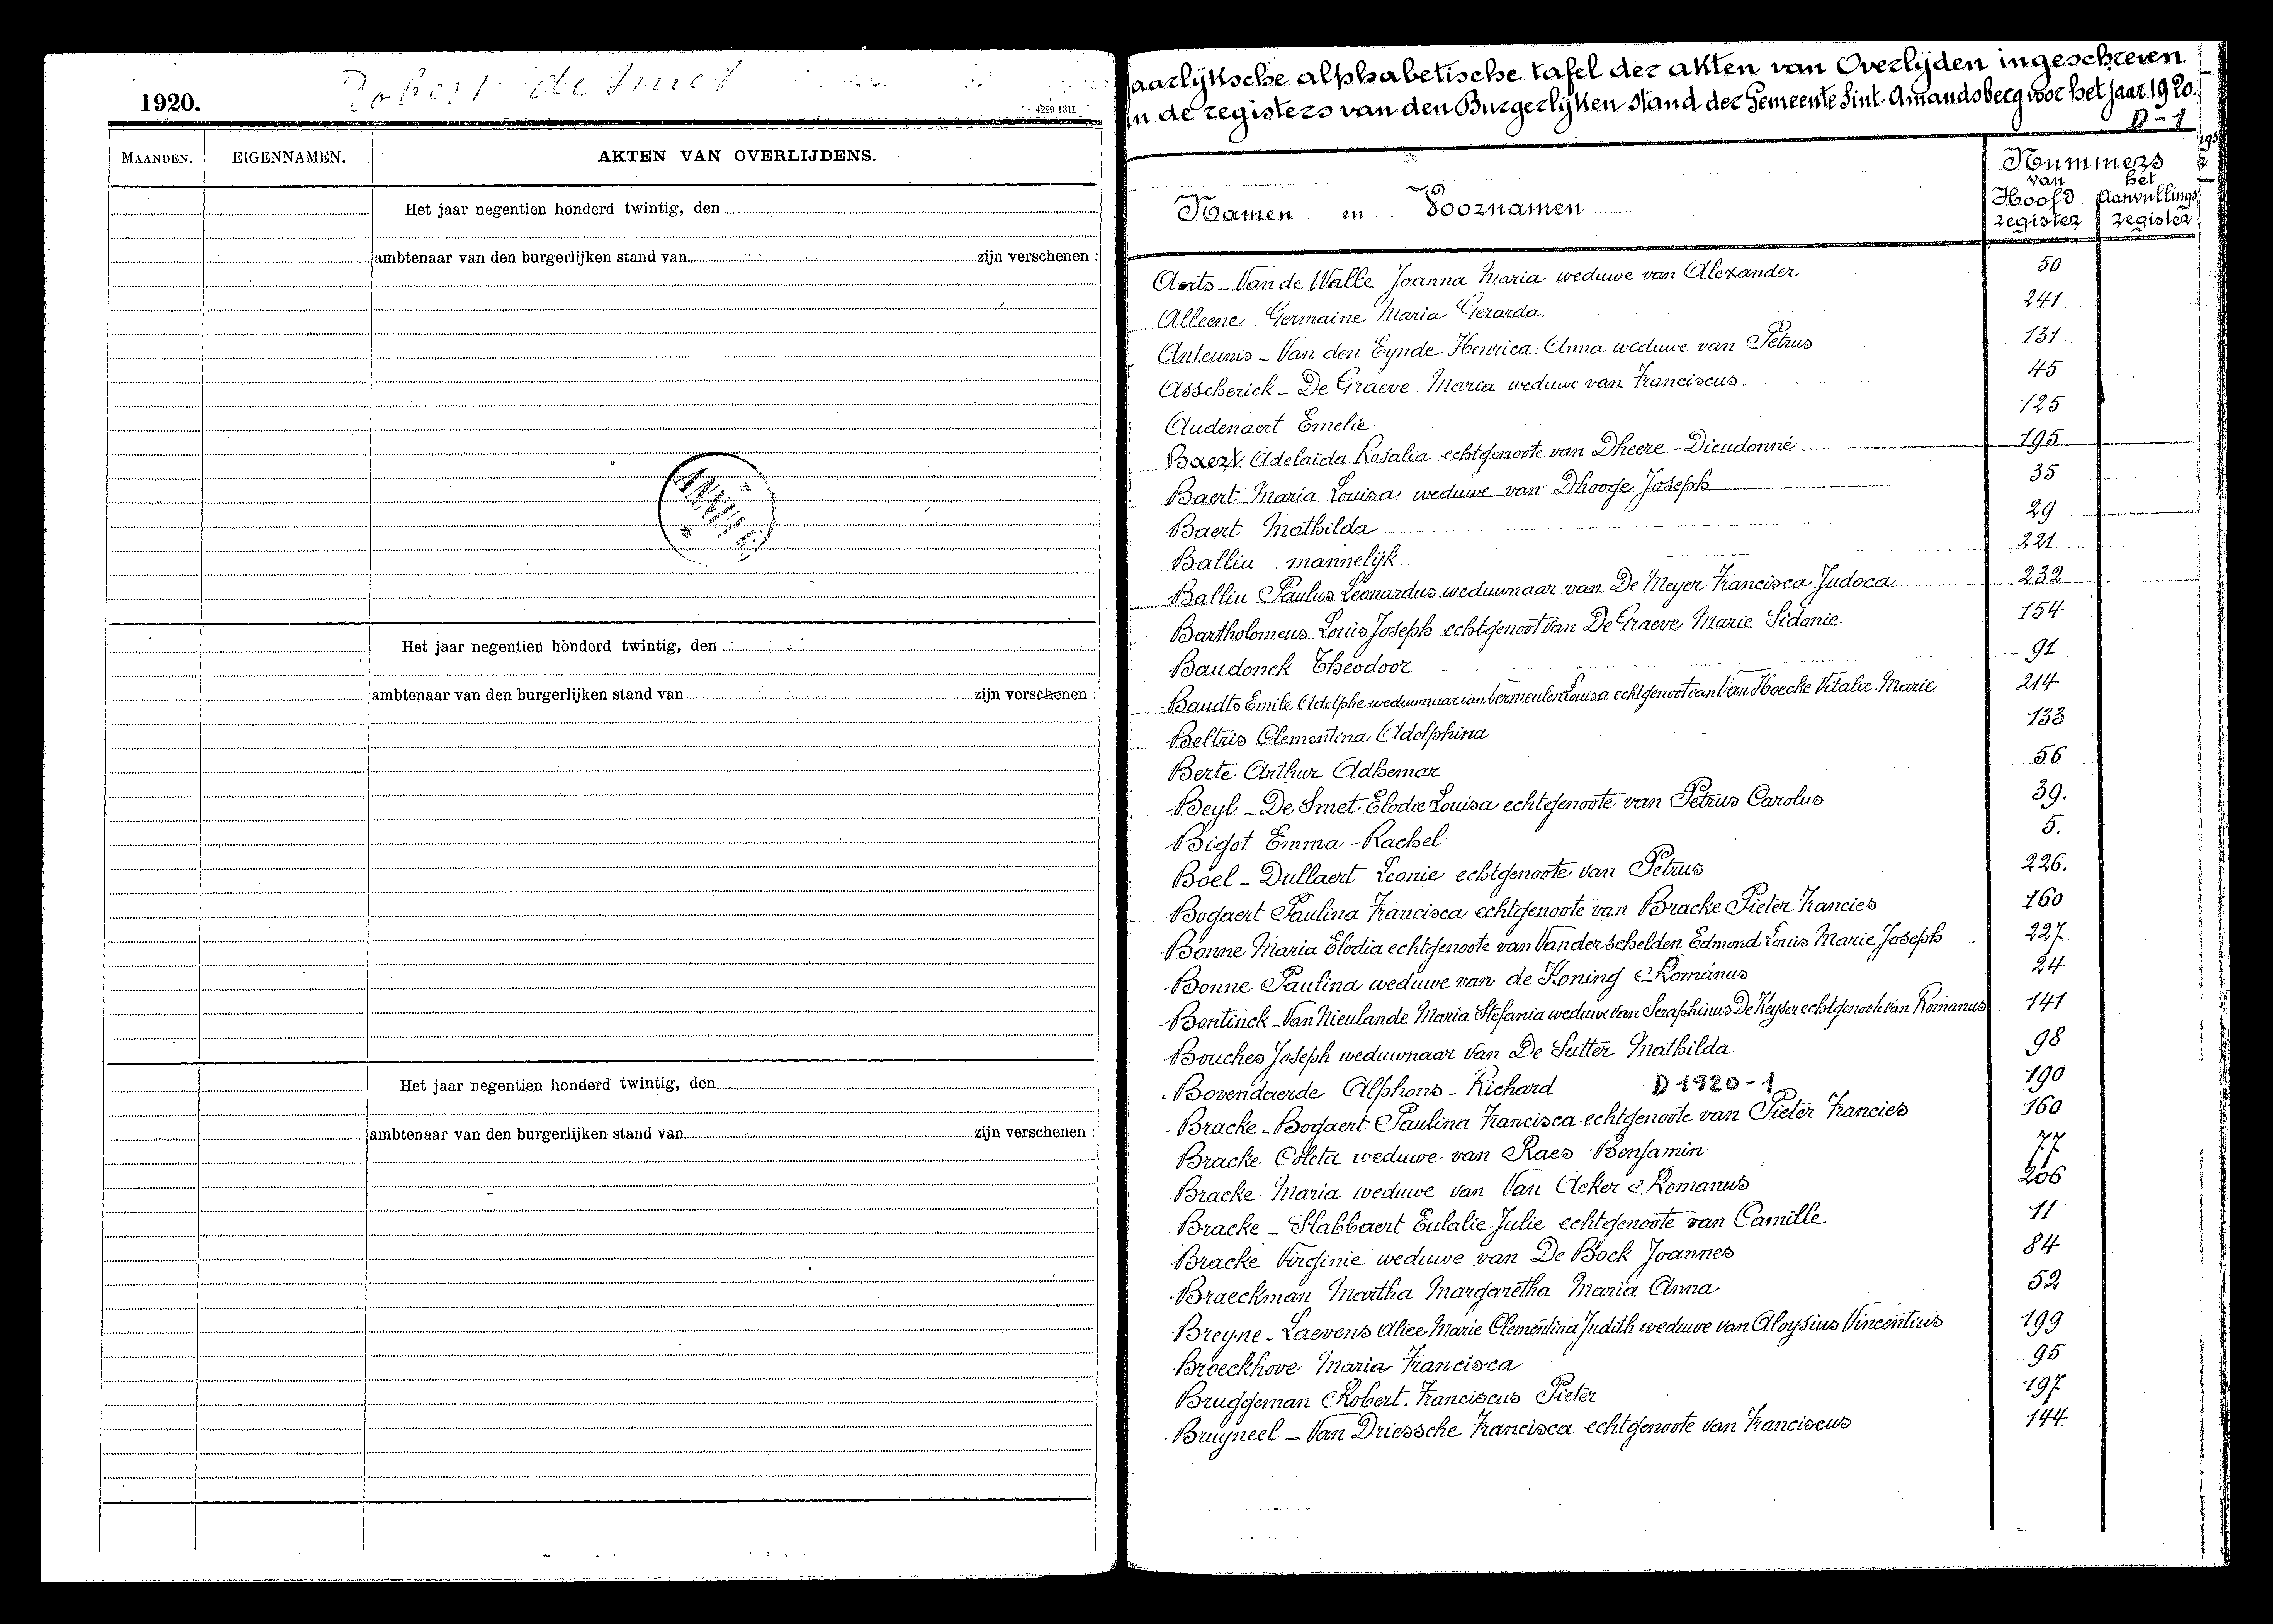 Robert de Smet
1920.
4229 1311
MAANDEN.
EIGENNAMEN.
AKTEN VAN OVERLIJDENS.
Het jaar negentien honderd twintig, den
ambtenaar van den burgerlijken stand van zijn verschenen :
Het jaar negentien honderd twintig, den
ambtenaar van den burgerlijken stand van zijn verschenen :
Het jaar negentien honderd twintig, den
ambtenaar van den burgerlijken stand van zijn verschenen :
aarlijksche alphabetische tafel der akten van Overlijden ingeschreven
n de registers van den Burgerlijken stand der Gemeente Sint-Amandsberg voor het jaar 1920.
D-1
Namen en Voornamen
Nummers
van het
Hoofd Aanvullings
register register
Aerts - Van de Walle Joanna Maria weduwe van Alexander 50
Alleene Germaine Maria Gerarda. 241.
Anteunis - Van den Eynde Henrica. Anna weduwe van Petrus 131
Asscherick - De Graeve Maria weduwe van Franciscus. 45
Audenaert Emelie 125
Baert Adelaida Rosalia echtgenoote van Dheere - Dieudonné 195
Baert Maria Louisa weduwe van Dhooge Joseph 35
Baert Mathilda 29
Balliu mannelijk 221
Balliu Paulus Leonardus weduwnaar van De Meyer Francisca Judoca 232
Bartholomeus Louis Joseph echtgenoot van De Graeve Marie Sidonie. 154
Baudonck Theodoor 91
Baudts Emile Adolphe weduwnaar van Vermeulen Louisa echtgenoot van Van Hoecke Vitalie Marie 214
Beltris Clementina Adolphina 133
Berte Arthur Adhemar 56
Beyl - De Smet Elodie Louisa echtgenoote van Petrus Carolus 39.
Bigot Emma - Rachel 5.
Boel - Dullaert Leonie echtgenoote van Petrus 226.
Bogaert Paulina Francisca echtgenoote van Bracke Pieter Francies 160
Bonne Maria Elodia echtgenoote van Vanderschelden Edmond Louis Marie Joseph 227
Bonne Paulina weduwe van de Koning Romanus 24
Bontinck - Van Nieulande Maria Stefania weduwe van Seraphinus De Keyser echtgenoote van Romanus 141
Bouches Joseph weduwnaar van De Sutter Mathilda 98
Bovendaerde Alphons - Richard D 1920-1 190
Bracke - Bogaert Paulina Francisca echtgenoote van Pieter Francies 160
Bracke Coleta weduwe van Raes Benjamin 77
Bracke Maria weduwe van Van Acker Romanus 206
Bracke - Slabbaert Eulalie Julie echtgenoote van Camille 11
Bracke Virginie weduwe van De Bock Joannes 84
Braeckman Martha Margaretha Maria Anna 52
Breyne - Laevens Alice Marie Clementina Judith weduwe van Aloysius Vincentius 199
Broeckhove Maria Francisca 95
Bruggeman Robert Franciscus Pieter 197
Bruyneel - Van Driessche Francisca echtgenoote van Franciscus 144